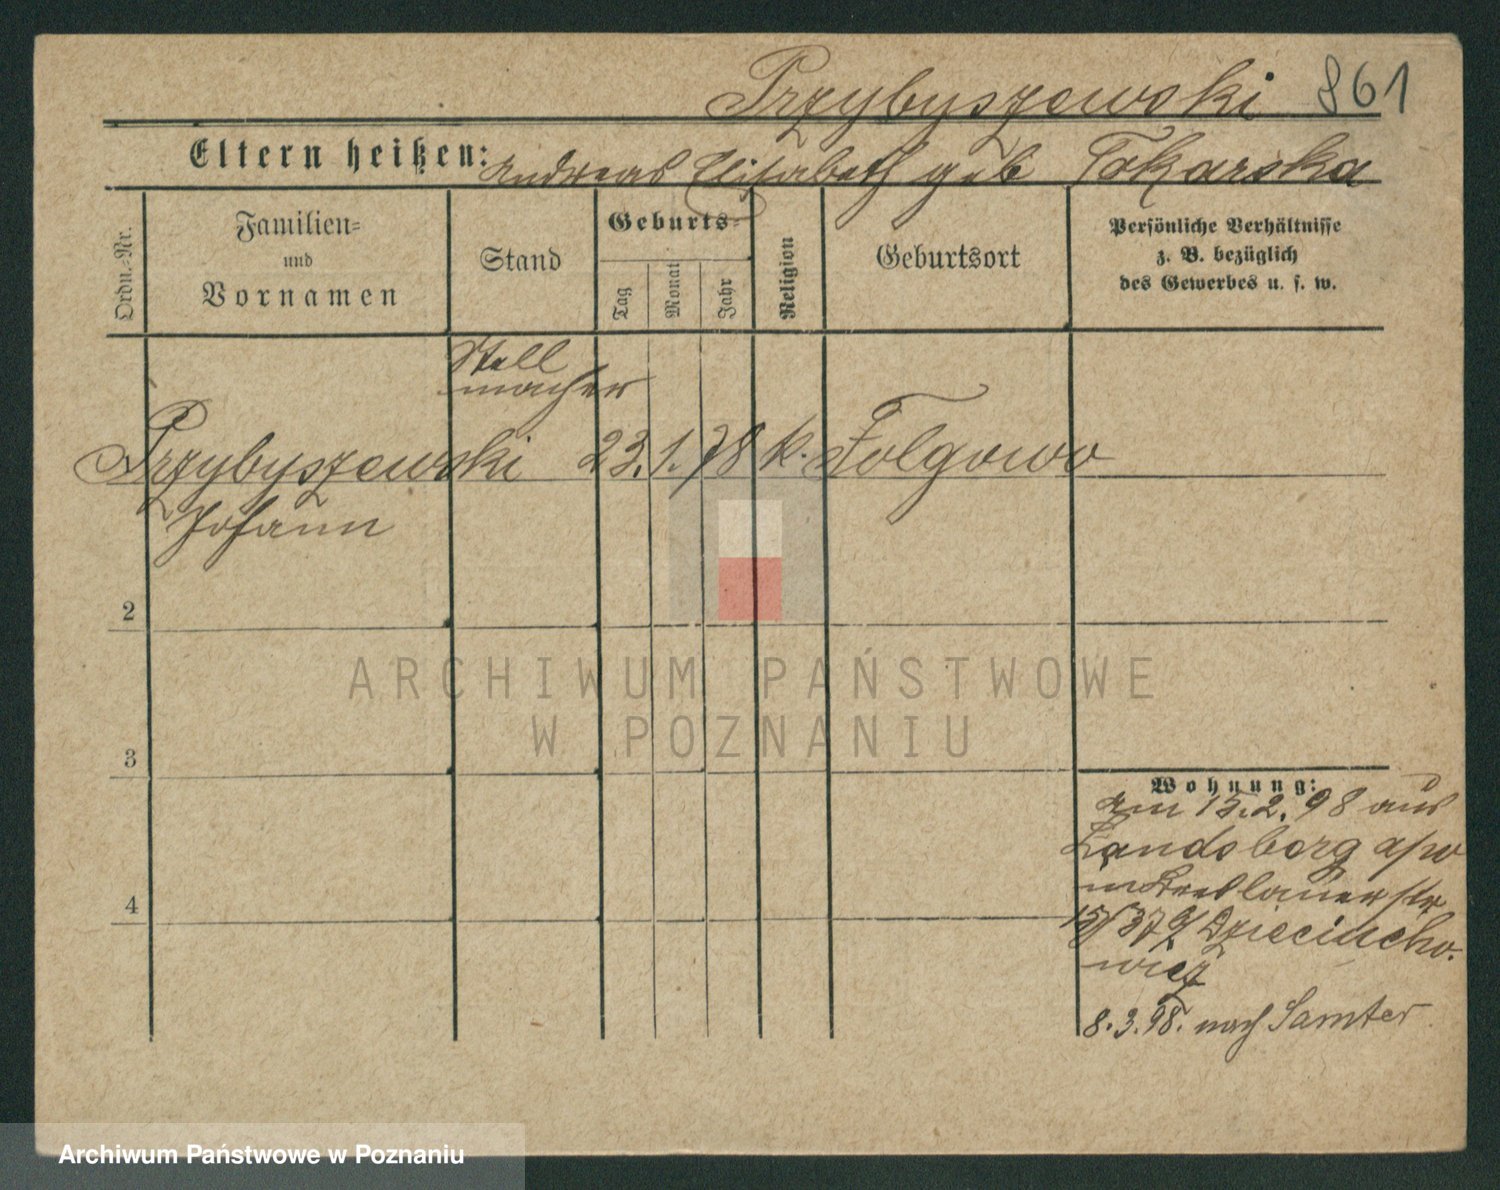 Przybyszewski 861
Eltern heißen: Andreas Elisabeth geb Tokarska
Ordn.-Nr.
Familien-
und
Vornamen
Stand
Geburts-
Tag
Monat
Jahr
Religion
Geburtsort
Persönliche Verhältnisse
z. B. bezüglich
des Gewerbes u. s. w.
Stell
macher
Przybyszewski 23. 1. 78 k. Folgowo
Johann
2
3
4
Wohnung:
am 15.2.98 aus
Landsberg a/w
in Breslauerstr
15/37 b/ Dzieciucho-
wicz
8.3.98. nach Samter
ARCHIWUM PAŃSTWOWE
W POZNANIU
Archiwum Państwowe w Poznaniu